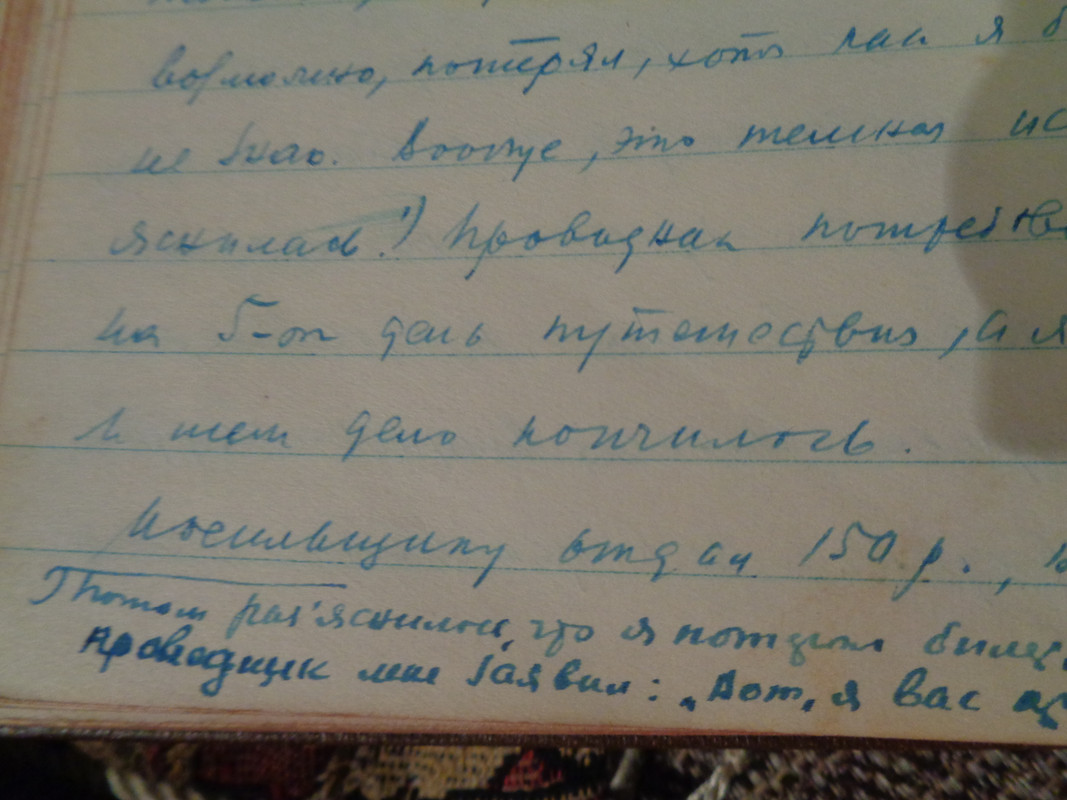 возможно, потерял, хотя как я б
не знаю. Вообще, это темная ис
яснилась.¹) Проводник потребов
на 5-ый день путешествия, а я
и тем дело кончилось.
Носильщику отдал 150 р.,
¹) Потом раз'яснилось, что я потерял билет
Проводник мне заявил: „Вот, я вас